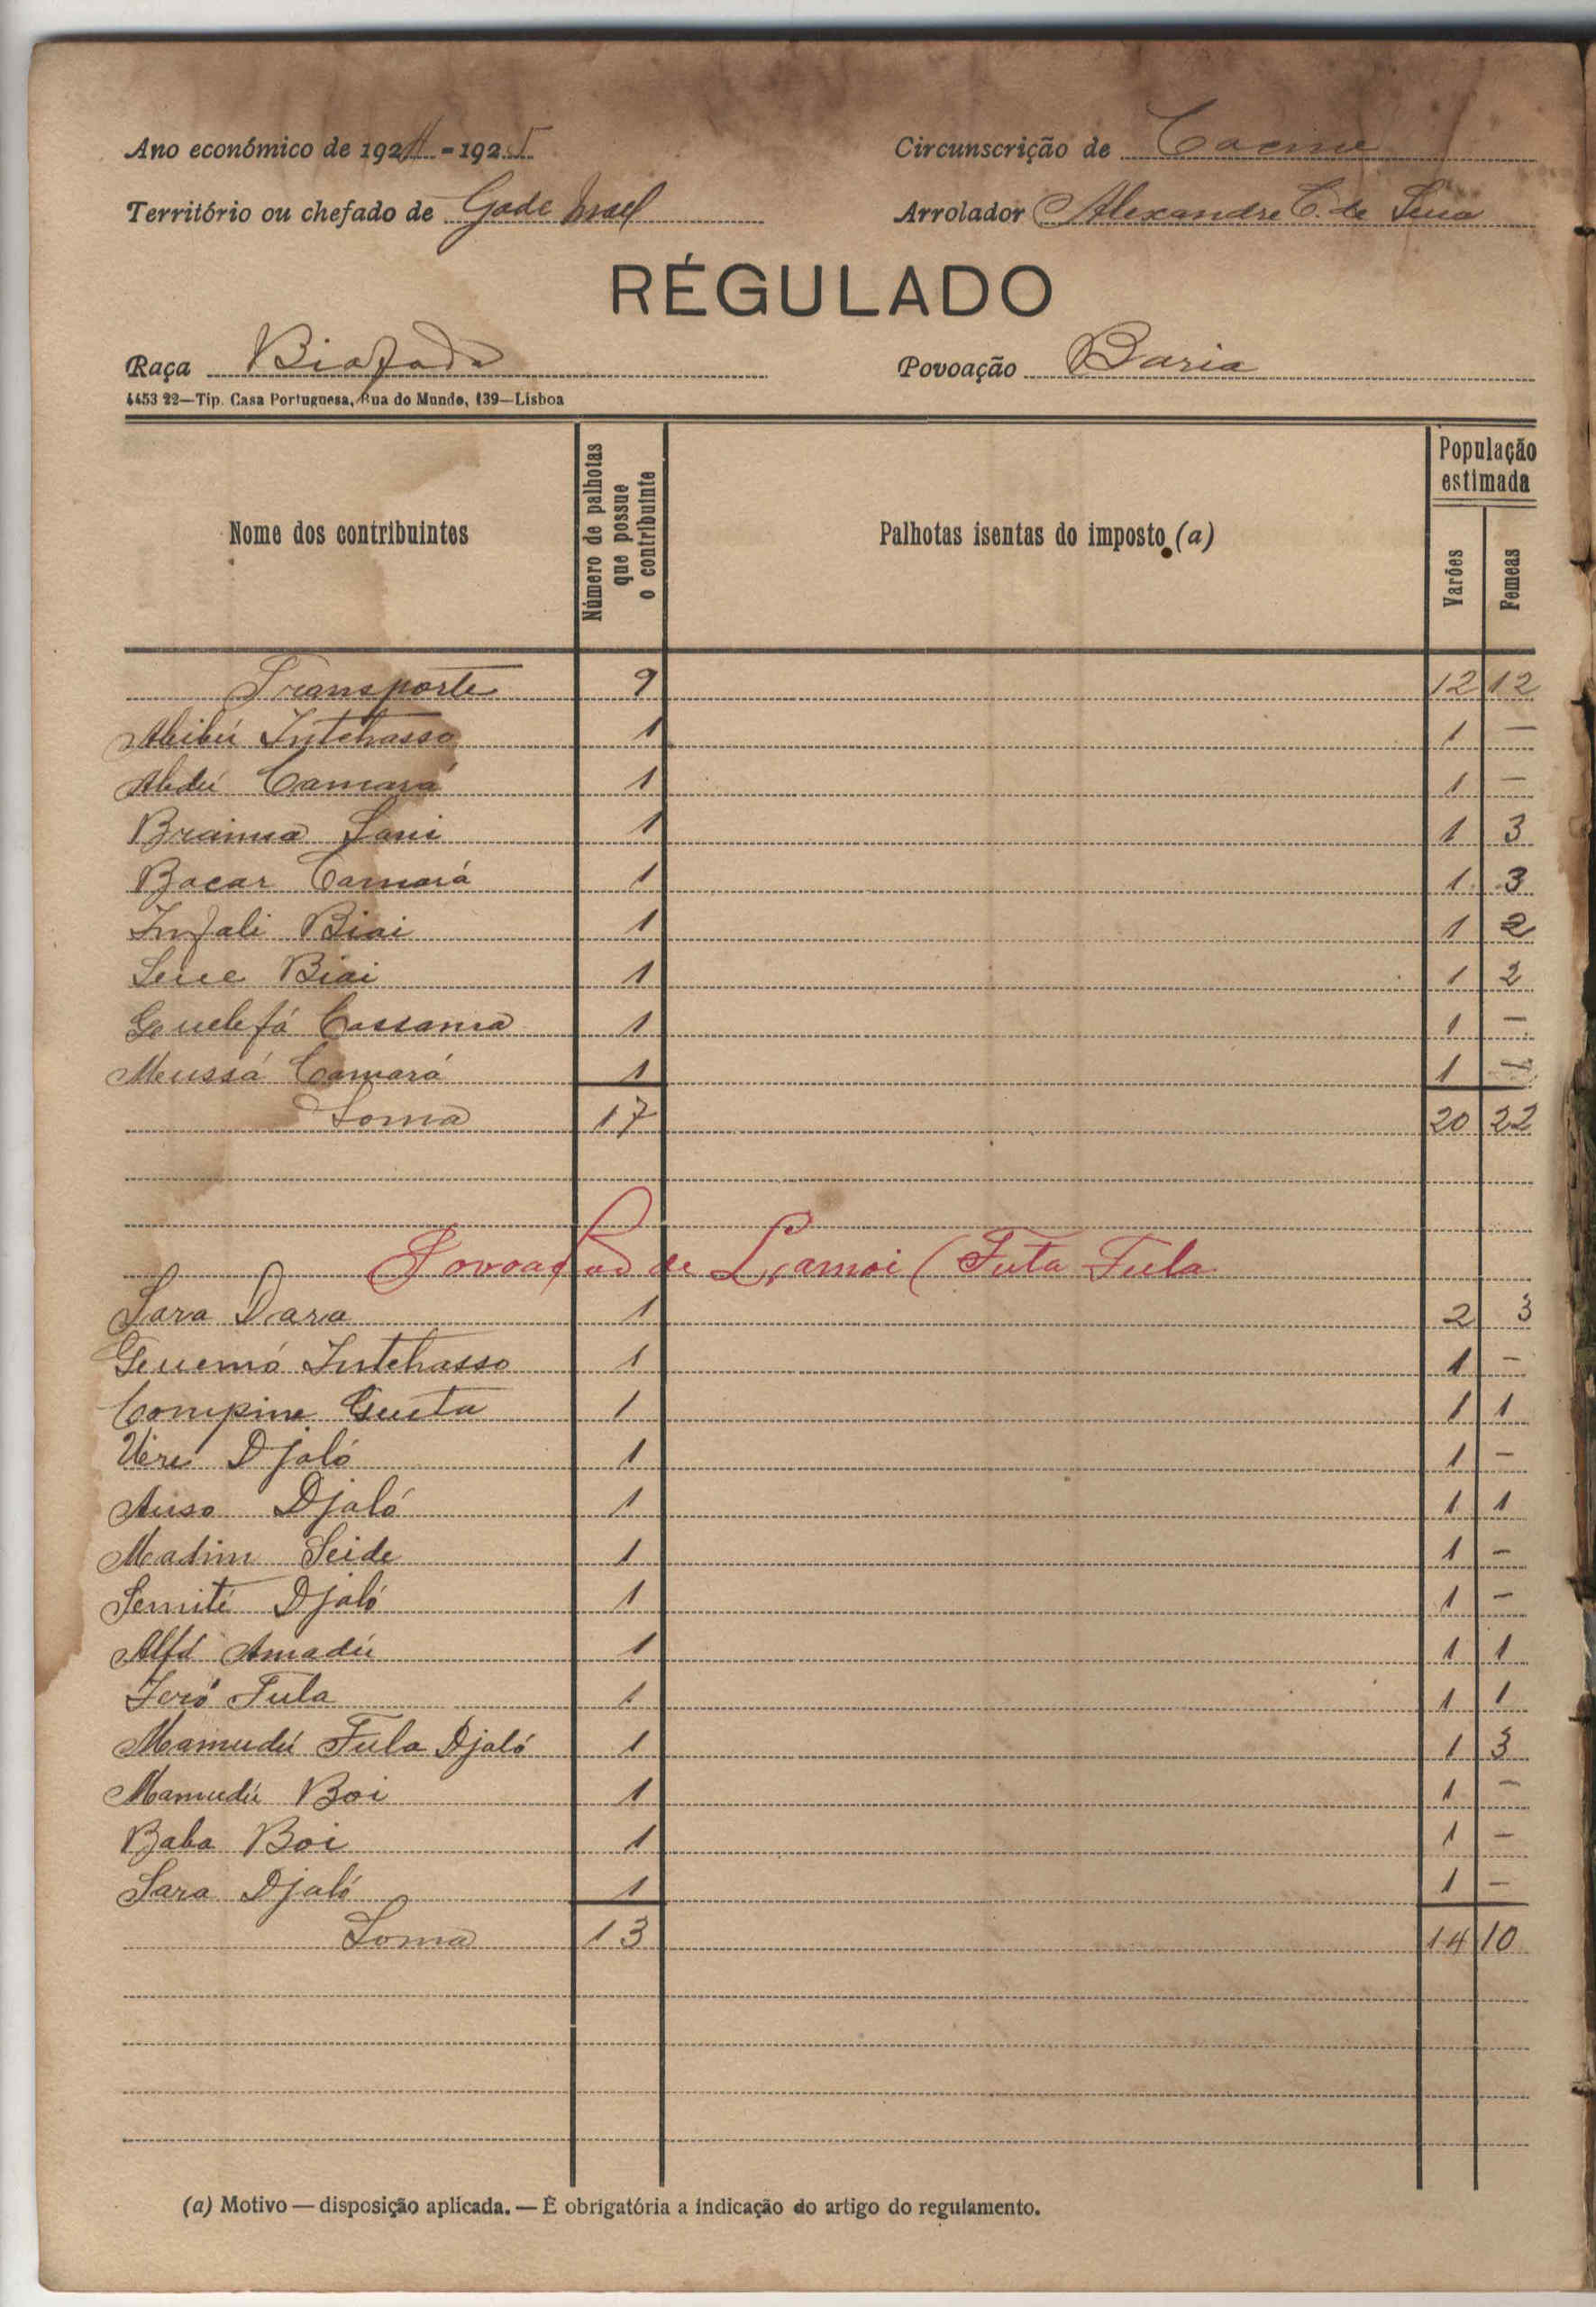 Ano económico de 1924-1925 Circunscrição de Cacine
Território ou chefado de Gade Arrolador Alexandre C. de Sena
RÉGULADO
Raça Biafada Povoação Baria
4453 22—Tip. Casa Portuguesa, Rua do Mundo, 139—Lisboa
Nome dos contribuintes Número de palhotas que possue o contribuinte Palhotas isentas do imposto (a) População estimada Varões Femeas
Transporte 9 12 12
Abibú Intchasso 1 1 —
Abdú Camará 1 1 —
Braima Sani 1 1 3
Bacar Camará 1 1 3
Infali Biai 1 1 2
Biai 1 1 2
Guelefá Cassama 1 1 —
Mussá Camará 1 1
Soma 17 20 22
Povoação de (Futa Fula
Sara Dara 1 2 3
Intchasso 1 1 —
1 1 1
Djaló 1 1 —
Djaló 1 1 1
Seide 1 1 —
Djaló 1 1 —
Alfá Amadú 1 1 1
Fula 1 1 1
Mamudú Fula Djaló 1 1 3
Mamudú Boi 1 1 —
Baba Boi 1 1 —
Sara Djaló 1 1 —
Soma 13 14 10
(a) Motivo — disposição aplicada. — É obrigatória a indicação do artigo do regulamento.